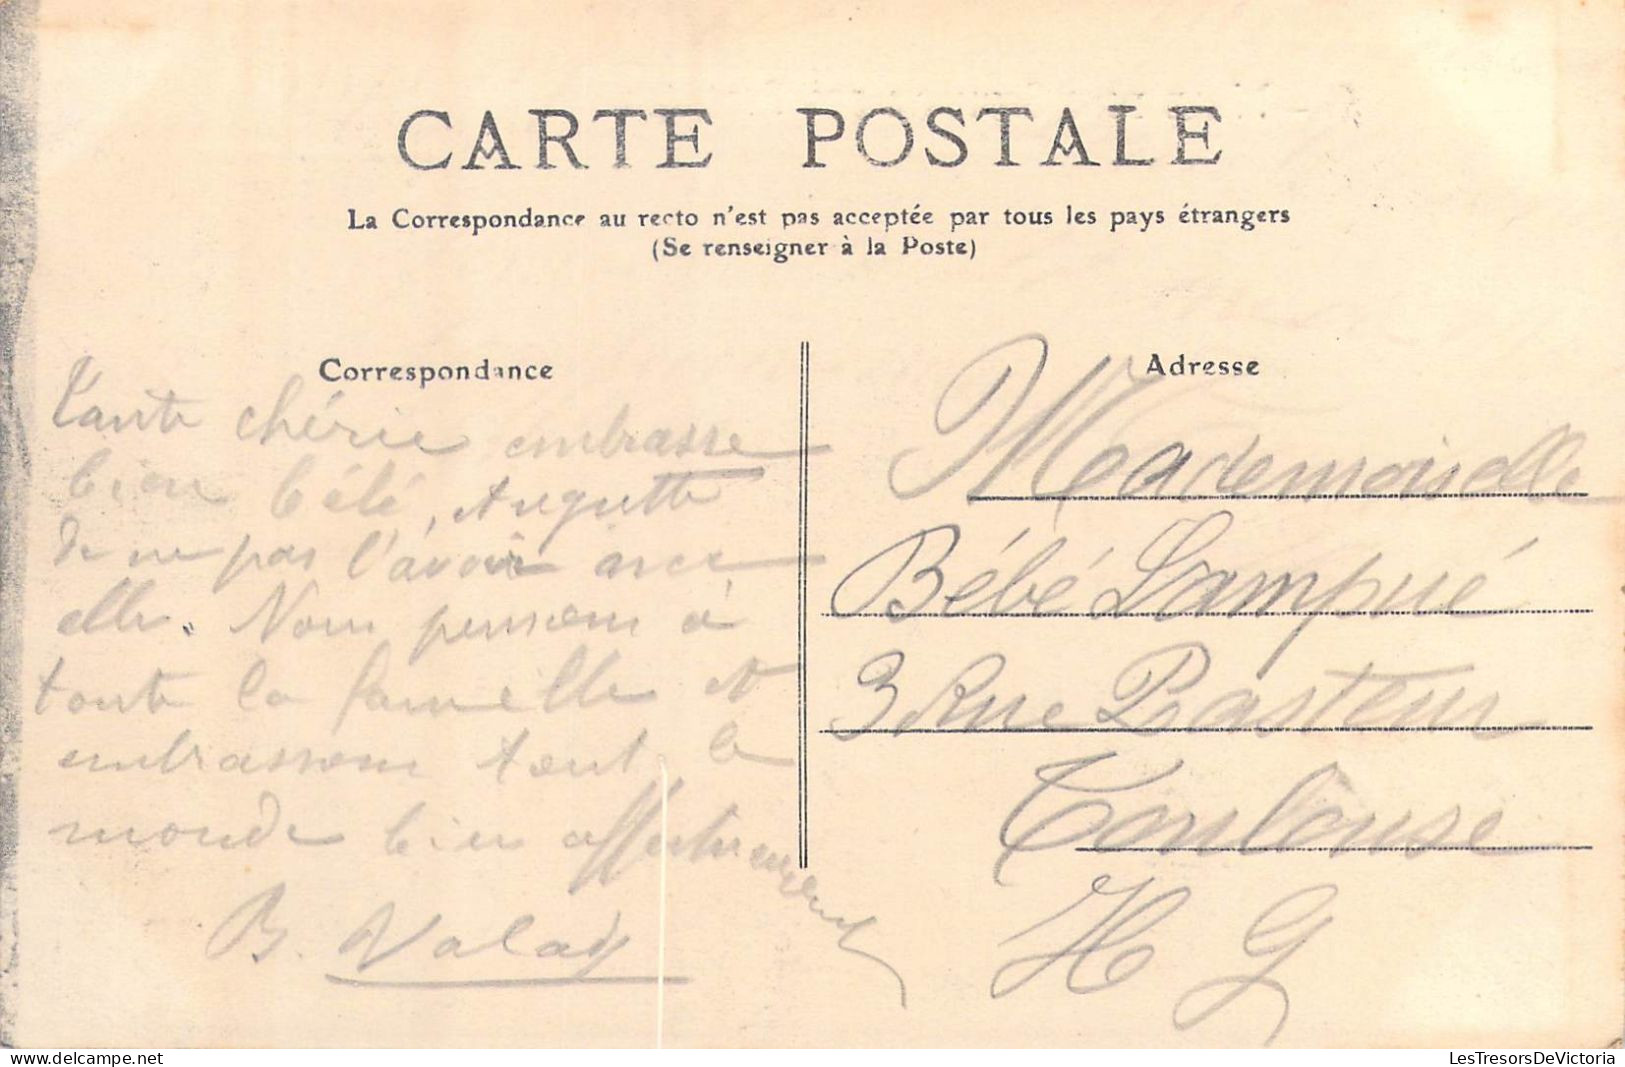 CARTE POSTALE
La Correspondance au recto n'est pas acceptée par tous les pays étrangers
(Se renseigner à la Poste)
Correspondance
Tante chérie embrasse
bien bébé,
de ne pas l'avoir avec
elle. Nous pensons à
toute la famille et
embrassons tout le
monde bien affectueusement
B. Valady
Adresse
Mademoiselle
Bébé Lampué
3 Rue Pasteur
Toulouse
H G
LesTresorsDeVictoria
www.delcampe.net